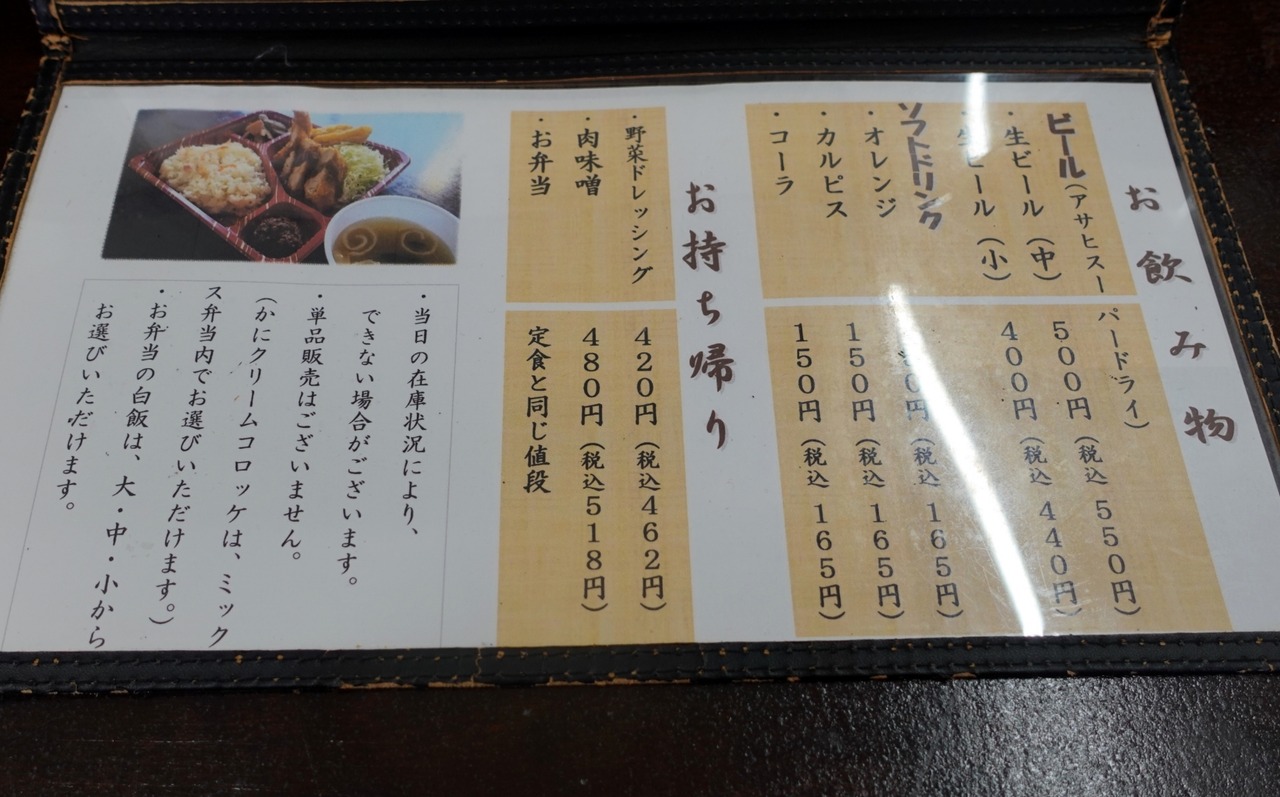 お飲み物
ビール（アサヒスーパードライ）
・生ビール（中） 500円（税込550円）
・生ビール（小） 400円（税込440円）
ソフトドリンク
・オレンジ 50円（税込165円）
・カルピス 150円（税込165円）
・コーラ 150円（税込165円）
お持ち帰り
・野菜ドレッシング 420円（税込462円）
・肉味噌 480円（税込518円）
・お弁当 定食と同じ値段
・当日の在庫状況により、
できない場合がございます。
・単品販売はございません。
（かにクリームコロッケは、ミック
ス弁当内でお選びいただけます。）
・お弁当の白飯は、大・中・小から
お選びいただけます。